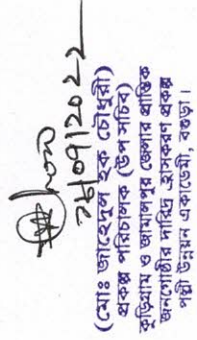 ২৮/০৭/২০২২
(মোঃ জাহেদুল হক চৌধুরী)
প্রকল্প পরিচালক (উপ সচিব)
কুড়িগ্রাম ও জামালপুর জেলার প্রান্তিক
জনগোষ্ঠীর দারিদ্র্য হ্রাসকরণ প্রকল্প
পল্লী উন্নয়ন একাডেমী, বগুড়া।